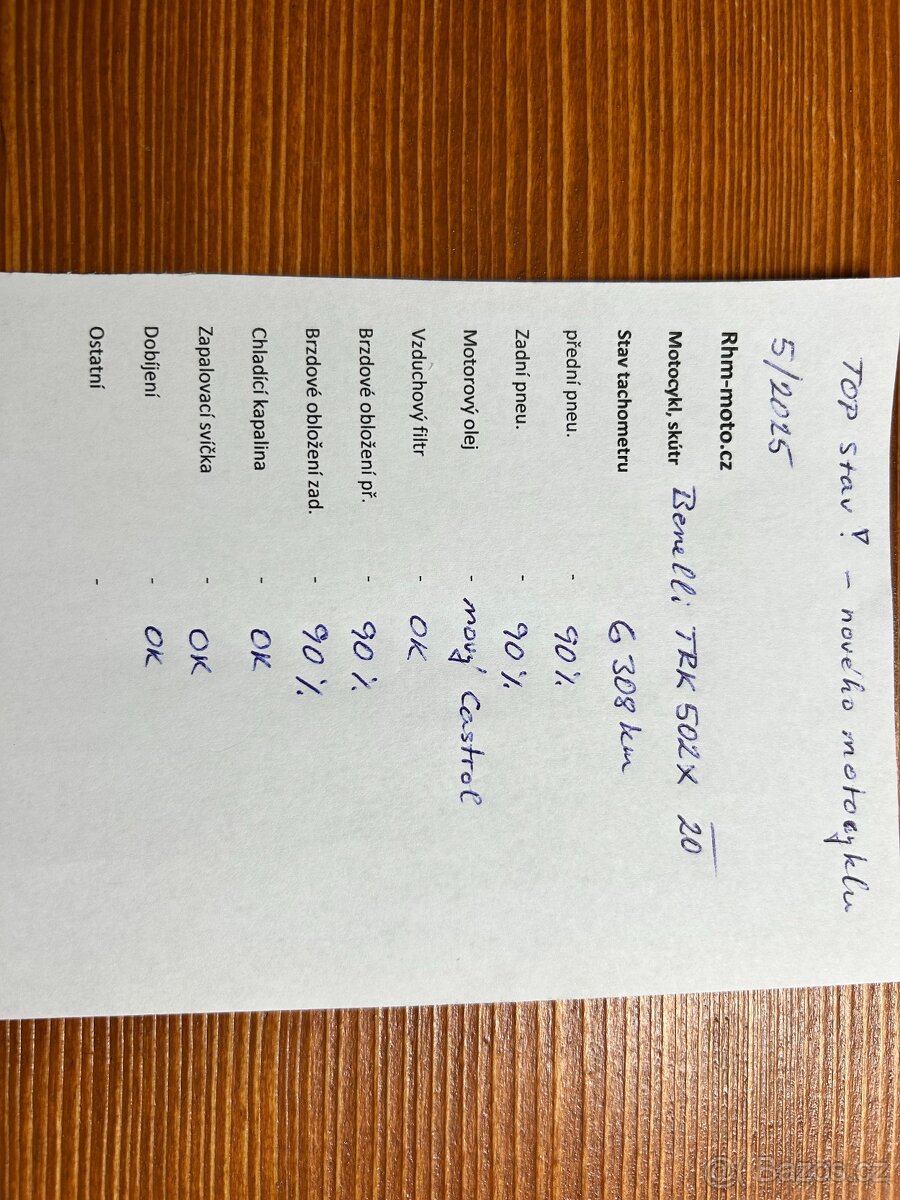 TOP stav! - nového motocyklu
5/2025
Rhm-moto.cz
Motocykl, skútr Benelli TRK 502X 20
Stav tachometru 6 308 km
přední pneu. - 90%
Zadní pneu. - 90%
Motorový olej - nový Castrol
Vzduchový filtr - OK
Brzdové obložení př. - 90%
Brzdové obložení zad. - 90%
Chladící kapalina - OK
Zapalovací svíčka - OK
Dobíjení - OK
Ostatní -
© Bazos.cz